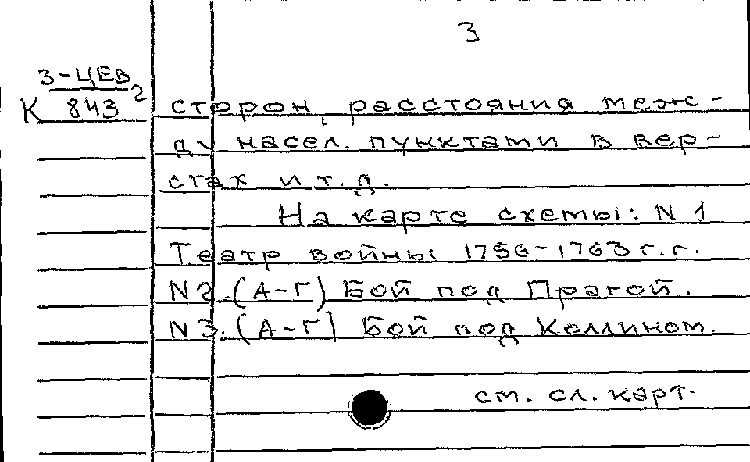 3
3-ЦЕВ
К 843 2
сторон, расстояния меж-
ду насел. пунктами в вер-
стах и т.д.
На карте схемы: N 1
Театр войны 1756-1763 г.г.
N2.(А-Г) Бой под Прагой.
N3.(А-Г) Бой под Коллином.
см. сл. карт.